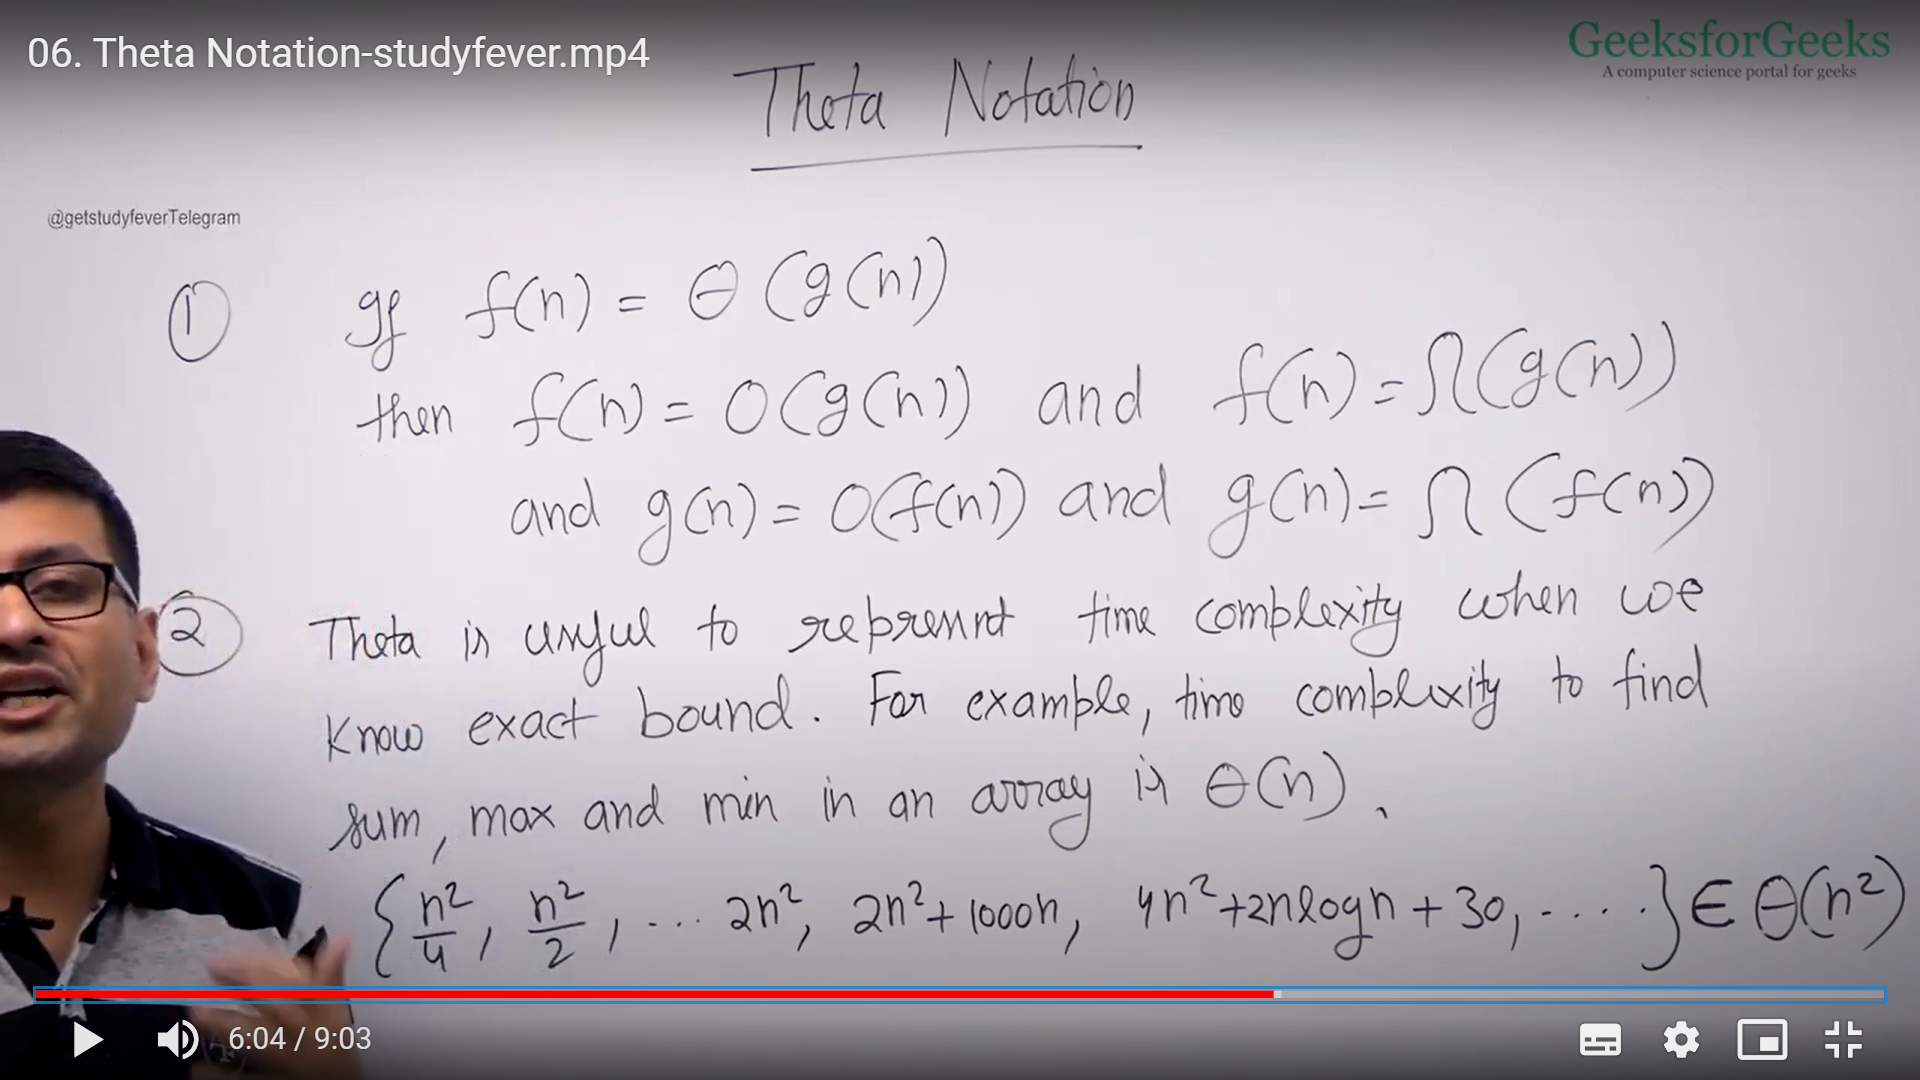 06. Theta Notation-studyfever.mp4
GeeksforGeeks
A computer science portal for geeks
Theta Notation
@getstudyfeverTelegram
① If f(n) = Θ(g(n))
then f(n) = O(g(n)) and f(n) = Ω(g(n))
and g(n) = O(f(n)) and g(n) = Ω(f(n))
② Theta is useful to represent time complexity when we
know exact bound. For example, time complexity to find
sum, max and min in an array is Θ(n).
{n²/4, n²/2, ... 2n², 2n²+1000n, 4n²+2nlogn+30, .....} ∈ Θ(n²)
6:04 / 9:03